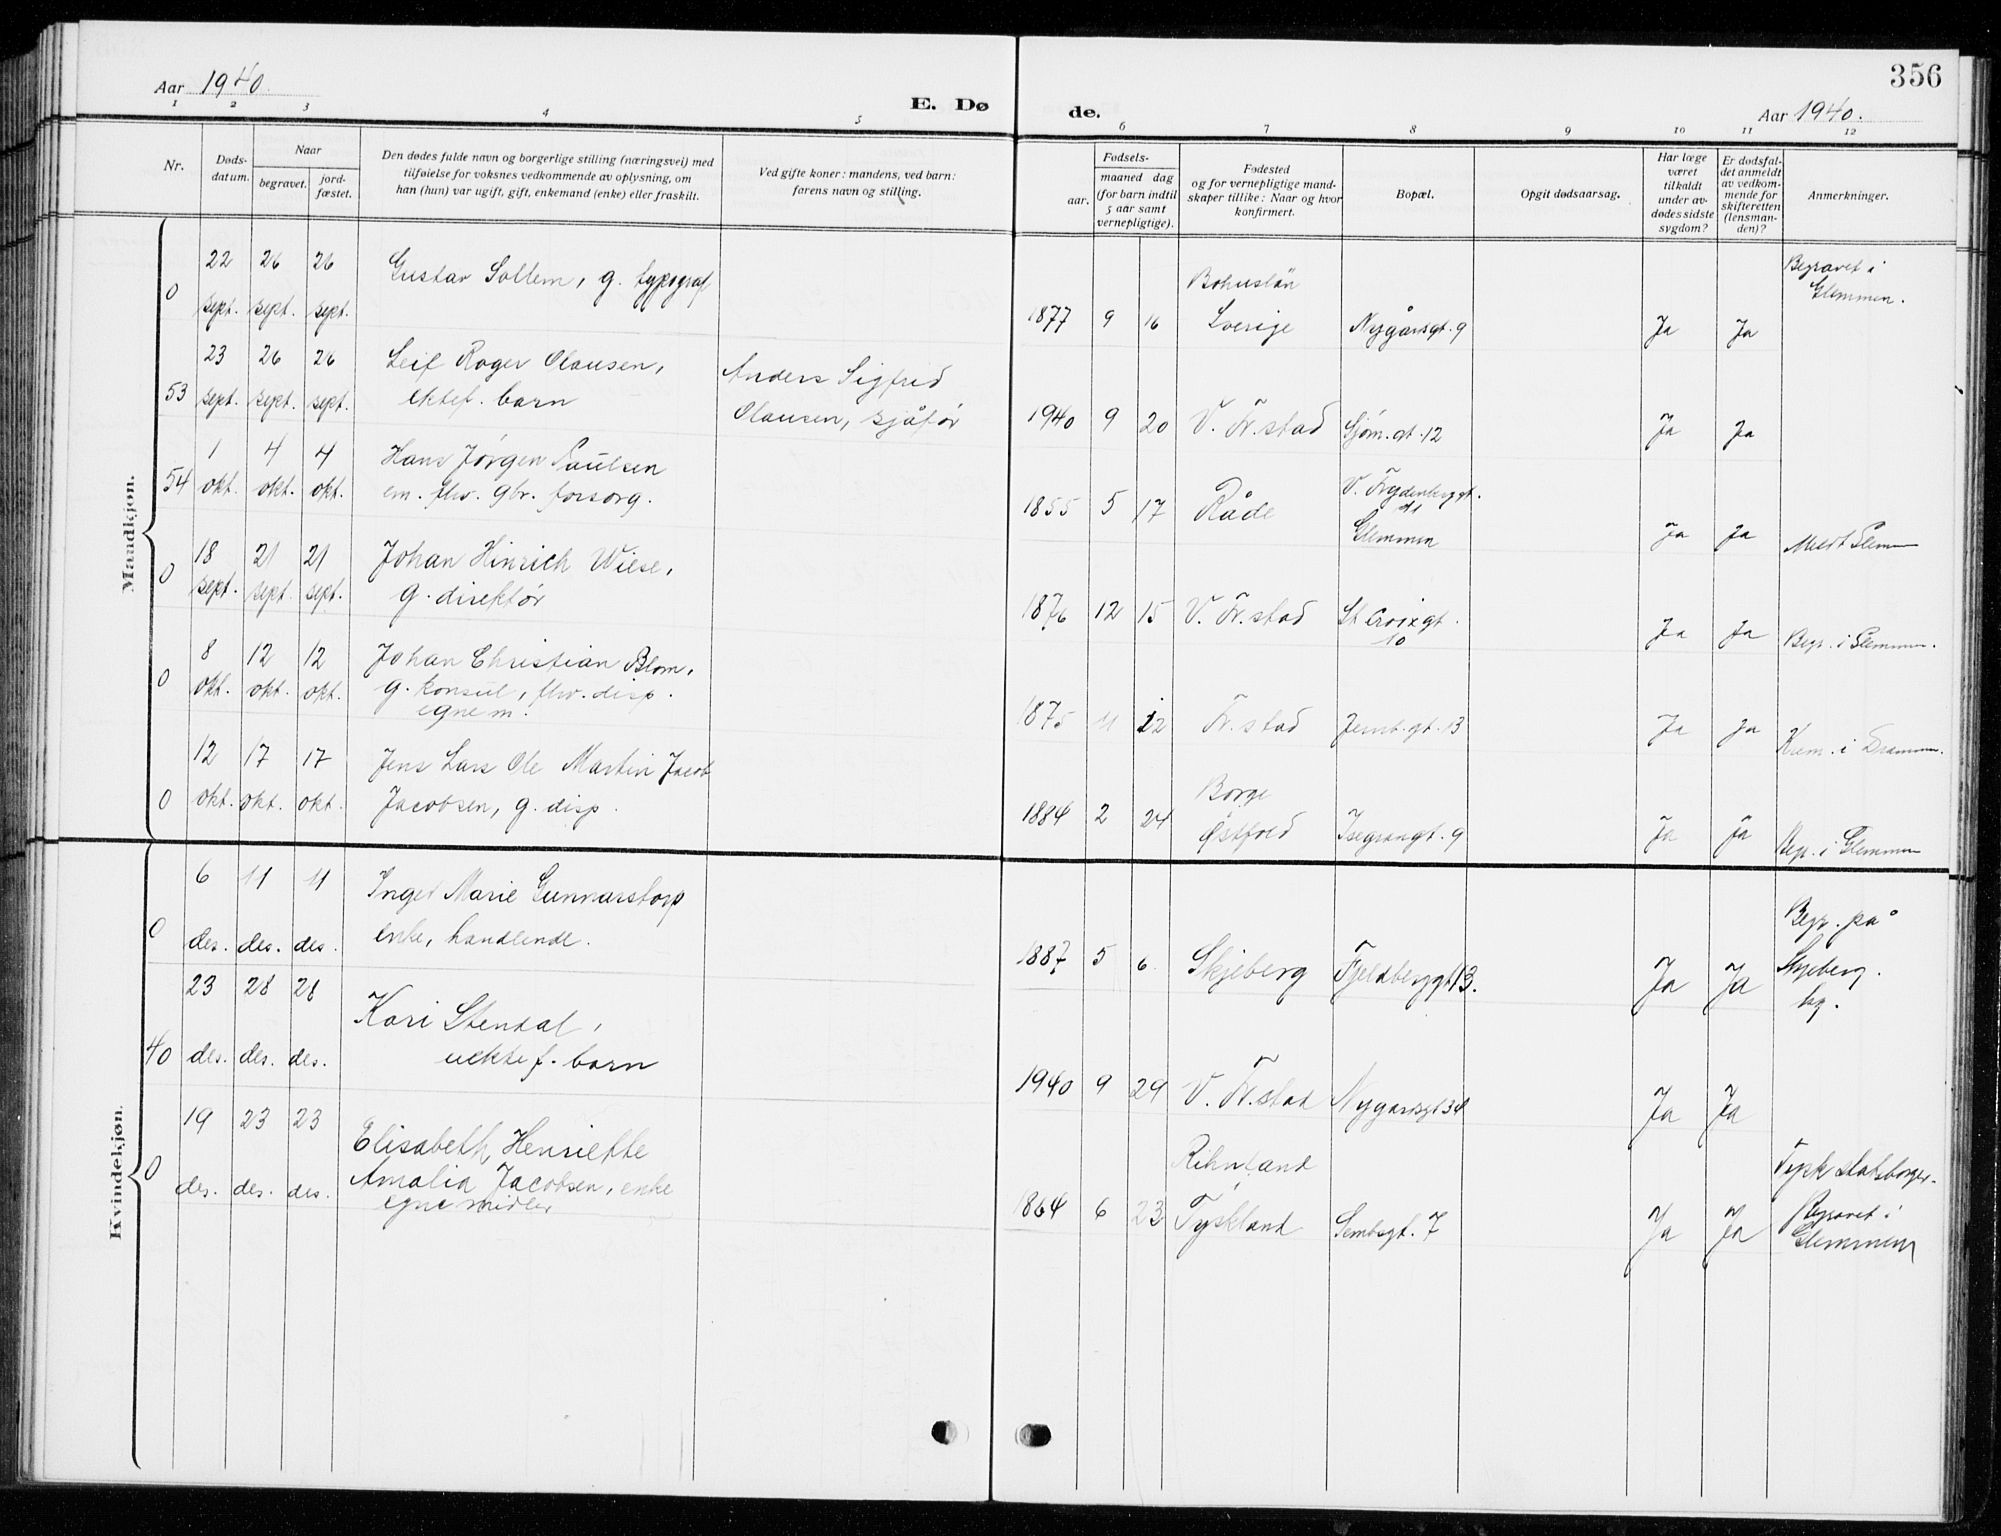 356
Aar 1940.
E. Døde.
Aar 1940.
1 2 3 4 5 6 7 8 9 10 11 12
Nr.
Døds-
datum.
Naar
begravet.
jord-
fæstet.
Den dødes fulde navn og borgerlige stilling (næringsvei) med
tilføielse for voksnes vedkommende av oplysning, om
han (hun) var ugift, gift, enkemand (enke) eller fraskilt.
Ved gifte koner: mandens, ved barn:
farens navn og stilling.
Fødsels-
aar.
maaned dag
(for barn indtil
5 aar samt
vernepligtige).
Fødested
og for vernepligtige mand-
skaper tillike: Naar og hvor
konfirmert.
Bopæl.
Opgit dødsaarsag.
Har læge
været
tilkaldt
under av-
dødes sidste
sygdom?
Er dødsfal-
det anmeldt
av vedkom-
mende for
skifteretten
(lensman-
den)?
Anmerkninger.
Mandkjøn.
0
22 26 26
sept. sept. sept.
Gustav Sollem, g. typograf
1877 9 16
Bohuslän
Sverige
Nygårdsgt. 9
Ja Ja
Begravet i
Glemmen.
53
23 26 26
sept. sept. sept.
Leif Roger Olausen,
ektef. barn
Anders Sigfred
Olausen, sjåfør
1940 9 20
V. Fr.stad
Sjøm.gt. 12
Ja Ja
54
1 4 4
okt. okt. okt.
Hans Jørgen Paulsen
em. fhv. gbr. forsorg.
1855 5 17
Råde
V. Frydenberggt.
Glemmen
Ja Ja
0
18 21 21
sept. sept. sept.
Johan Hinrich Wiese,
g. direktør
1876 12 15
V. Fr.stad
St. Croixgt.
10
Ja Ja
Begr. i Glemmen.
0
8 12 12
okt. okt. okt.
Johan Christian Blom,
g. konsul, fhv. disp.
egne m.
1875 11 22
Fr.stad
Jernb.gt. 13
Ja Ja
Krem. i Drammen.
0
12 17 17
okt. okt. okt.
Jens Lars Ole Martin Jacob
Jacobsen, g. disp.
1884 2 24
Borge
Østfold
Isegrangt. 9
Ja Ja
Begr. i Glemmen
Kvindekjøn.
0
6 11 11
des. des. des.
Inger Marie Gunnarstorp
enke, handlende.
1887 5 6
Skjeberg
Fjeldberggt 13.
Ja Ja
Begr. på
Skjeberg
kg.
40
23 28 28
des. des. des.
Kari Stendal,
uektef. barn
1940 9 29
V. Fr.stad
Nygaardsgt 34
Ja Ja
0
19 23 23
des. des. des.
Elisabeth Henriette
Amalia Jacobsen, enke
egne midler
1864 6 23
Rihnland
Tyskland
Sembsgt. 7
Ja Ja
Tysk statsborger.
Begravet i
Glemmen